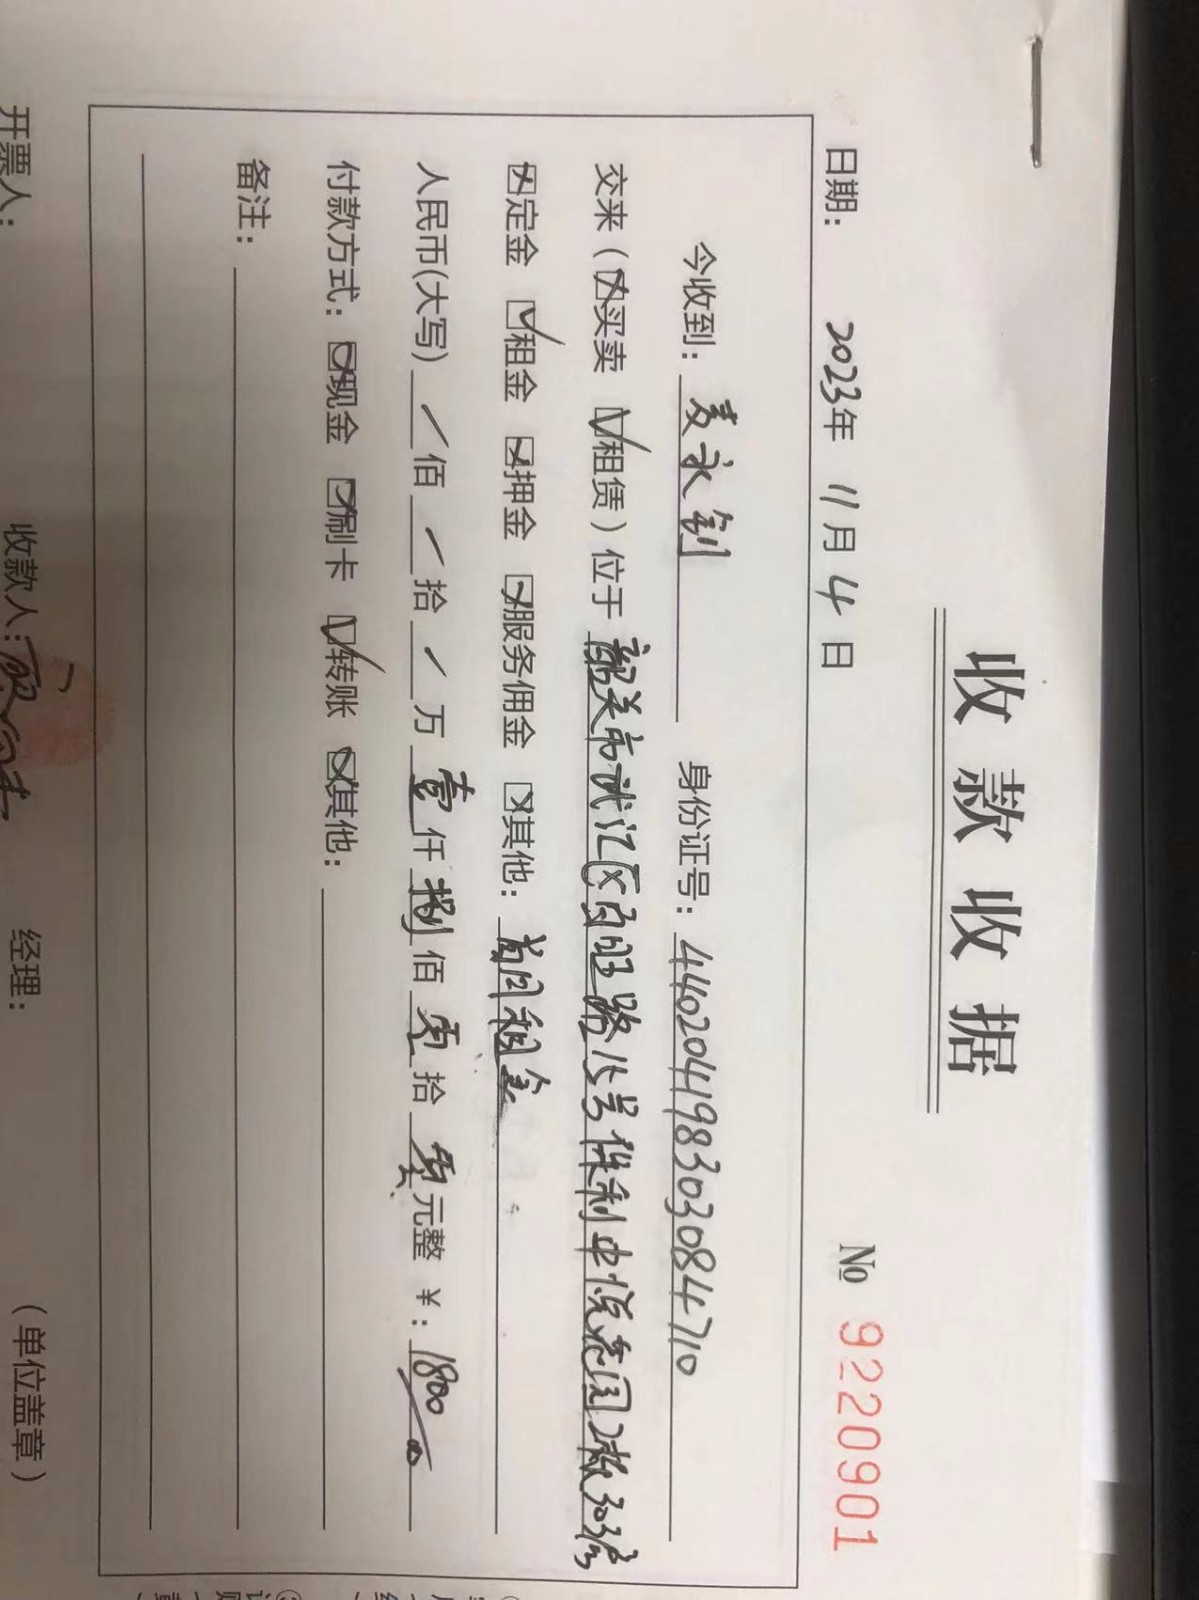 收款收据
№ 9220901
日期： 2023年 11月 4日
今收到：麦永钊 身份证号：440204198303084710
交来（☒买卖 ☑租赁）位于韶关市武江区百旺路15号保利中悦花园2栋303房
☒定金 ☑租金 ☒押金 ☒服务佣金 ☒其他：首月租金
人民币(大写) / 佰 / 拾 / 万 壹 仟 捌 佰 零 拾 零 元整 ¥：1800
付款方式：☒现金 ☒刷卡 ☑转账 ☒其他：
备注：
开票人： 收款人： 经理： （单位盖章）